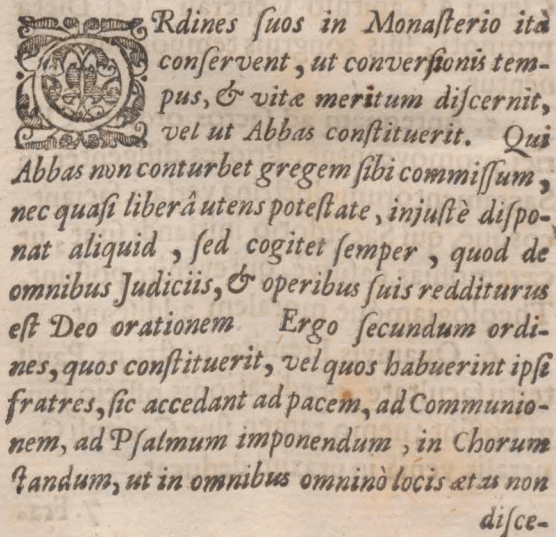 ORdines ſuos in Monaſterio ità
conſervent, ut converſionis tem-
pus, & vitæ meritum diſcernit,
vel ut Abbas conſtituerit. Qui
Abbas non conturbet gregem ſibi commiſſum,
nec quaſi liberâ utens poteſtate, injuſtè diſpo-
nat aliquid, ſed cogitet ſemper, quod de
omnibus Judiciis, & operibus ſuis redditurus
eſt Deo orationem Ergo ſecundum ordi-
nes, quos conſtituerit, vel quos habuerint ipſi
fratres, ſic accedant ad pacem, ad Communio-
nem, ad Pſalmum imponendum, in Chorum
ſtandum, ut in omnibus omninò locis ætas non
diſce-